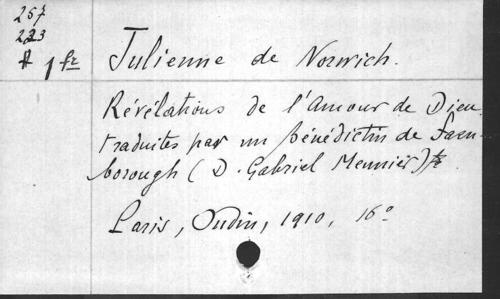 257
223
A 1 fr Julienne de Norwich.
Révélations de l'Amour de Dieu
traduites par un bénédictin de Farn-
borough (D. Gabriel Meunier) fr
Paris, Oudin, 1910, 16°